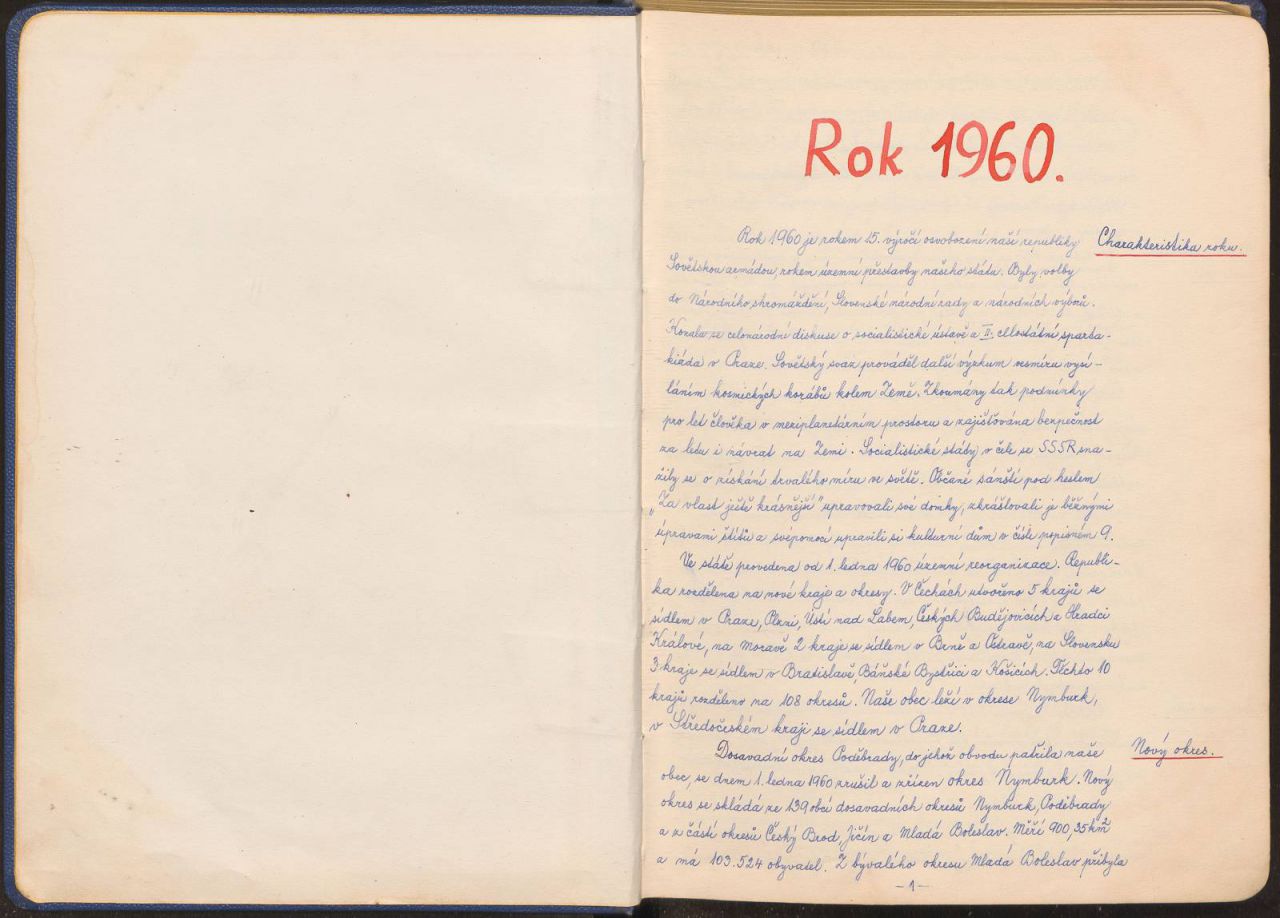 Rok 1960.
Rok 1960 je rokem 15. výročí osvobození naší republiky
Charakteristika roku.
Sovětskou armádou, rokem územní přestavby našeho státu. Byly volby
do Národního shromáždění, Slovenské národní rady a národních výborů.
Konala se celonárodní diskuse o socialistické ústavě a II. cellostátní sparta-
kiáda v Praze. Sovětský svaz prováděl další výzkum vesmíru vysí-
láním kosmických korábů kolem Země. Zkoumány tak podmínky
pro let člověka v meziplanetárním prostoru a zajišťována bezpečnost
za letu i návrat na Zemi. Socialistické státy v čele se SSSR sna-
žily se o získání trvalého míru ve světě. Občané sánští pod heslem
„Za vlast ještě krásnější" upravovali své domky, zkrášlovali je běžnými
úpravami štítů a svépomocí upravili si kulturní dům v čísle popisném 9.
Ve státě provedena od 1. ledna 1960 územní reorganizace. Republi-
ka rozdělena na nové kraje a okresy. V Čechách utvořeno 5 krajů se
sídlem v Praze, Plzni, Ústí nad Labem, Českých Budějovicích a Hradci
Králové, na Moravě 2 kraje se sídlem v Brně a Ostravě, na Slovensku
3 kraje se sídlem v Bratislavě, Báňské Bystřici a Košicích. Těchto 10
krajů rozděleno na 108 okresů. Naše obec leží v okrese Nymburk,
v Středočeském kraji se sídlem v Praze.
Dosavadní okres Poděbrady, do jehož obvodu patřila naše
Nový okres.
obec, se dnem 1. ledna 1960 zrušil a zřízen okres Nymburk. Nový
okres se skládá ze 139 obcí dosavadních okresů Nymburk, Poděbrady
a z částí okresů Český Brod, Jičín a Mladá Boleslav. Měří 900,35 km²
a má 103.524 obyvatel. Z bývalého okresu Mladá Boleslav přibyla
-1-